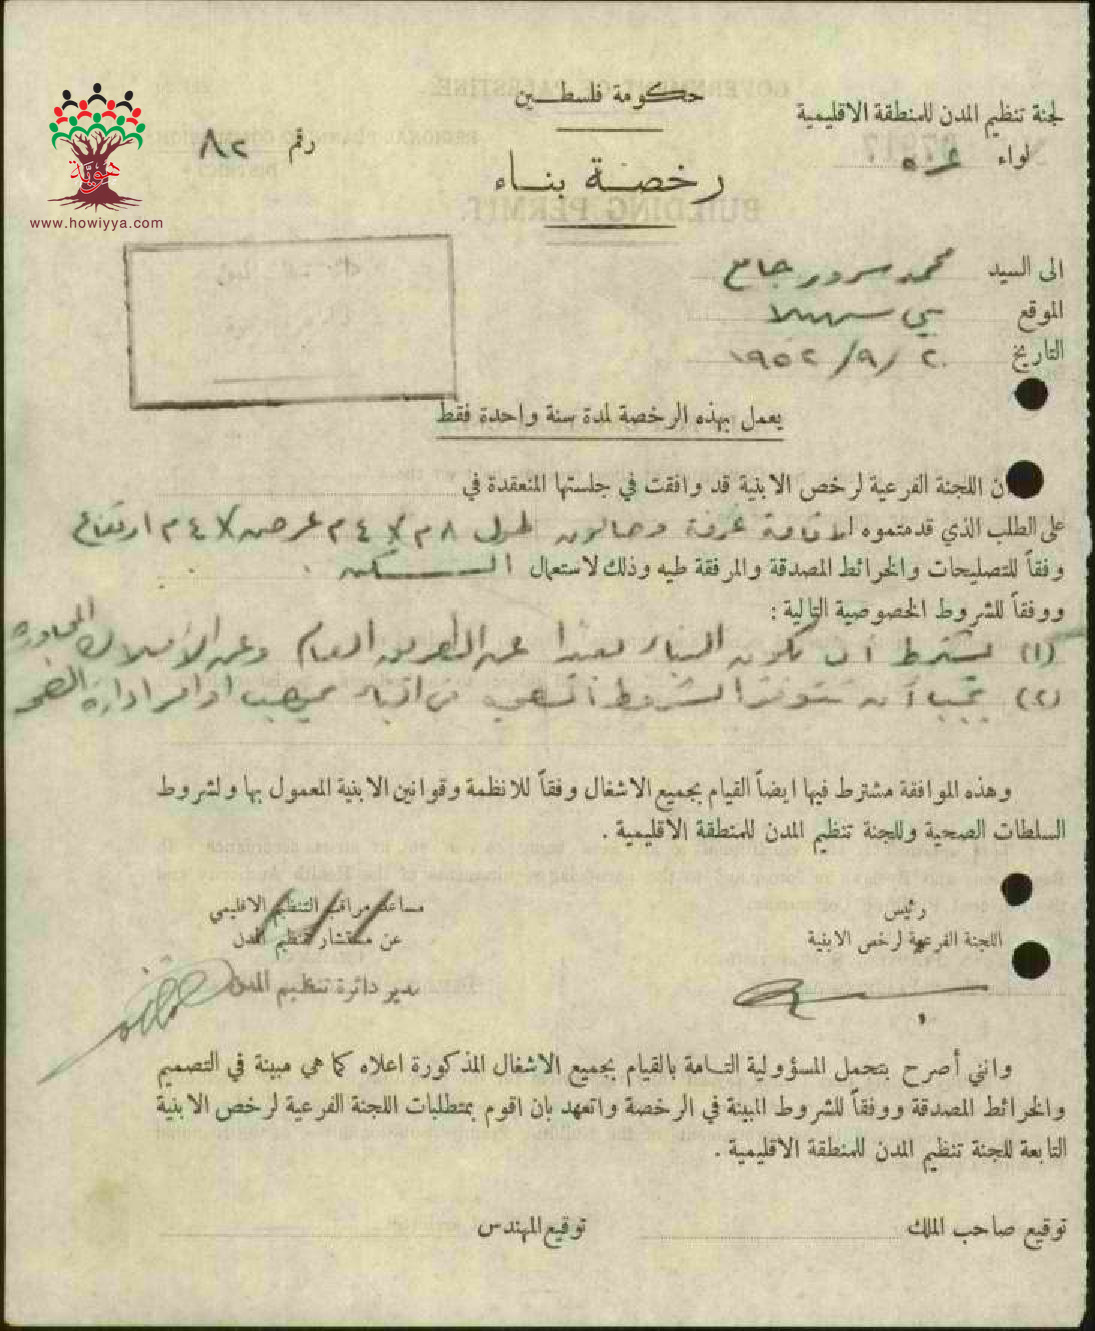 حكومة فلسطين
لجنة تنظيم المدن للمنطقة الاقليمية
لواء غزه
رقم ٨٢
هوية
www.howiyya.com
رخصة بناء
الى السيد محمد سرور جامع
الموقع بني سهيلا
التاريخ ٢٠/٩/١٩٥٢
يعمل بهذه الرخصة لمدة سنة واحدة فقط
ان اللجنة الفرعية لرخص الابنية قد وافقت في جلستها المنعقدة في
على الطلب الذي قدمتموه لاقامة غرفة وصالون طول ٨ م x ٤ م عرض x ٤ م ارتفاع
وفقاً للتصليحات والخرائط المصدقة والمرفقة طيه وذلك لاستعمال السكن .
ووفقاً للشروط الخصوصية التالية :
(١) يشترط أن يكون البناء بعيدا عن الطريق العام وعن الأملاك المجاورة
(٢) يجب أن تتوفر الشروط الصحية في البناء حسب اوامر ادارة الصحة
وهذه الموافقة مشترط فيها ايضاً القيام بجميع الاشغال وفقاً للانظمة وقوانين الابنية المعمول بها ولشروط
السلطات الصحية وللجنة تنظيم المدن للمنطقة الاقليمية .
رئيس
اللجنة الفرعية لرخص الابنية
مساعد مراقب التنظيم الاقليمي
عن مستشار تنظيم المدن
مدير دائرة تنظيم المدن
وانني أصرح بتحمل المسؤولية التامة بالقيام بجميع الاشغال المذكورة اعلاه كما هي مبينة في التصميم
والخرائط المصدقة ووفقاً للشروط المبينة في الرخصة واتعهد بان اقوم بمتطلبات اللجنة الفرعية لرخص الابنية
التابعة للجنة تنظيم المدن للمنطقة الاقليمية .
توقيع صاحب الملك
توقيع المهندس